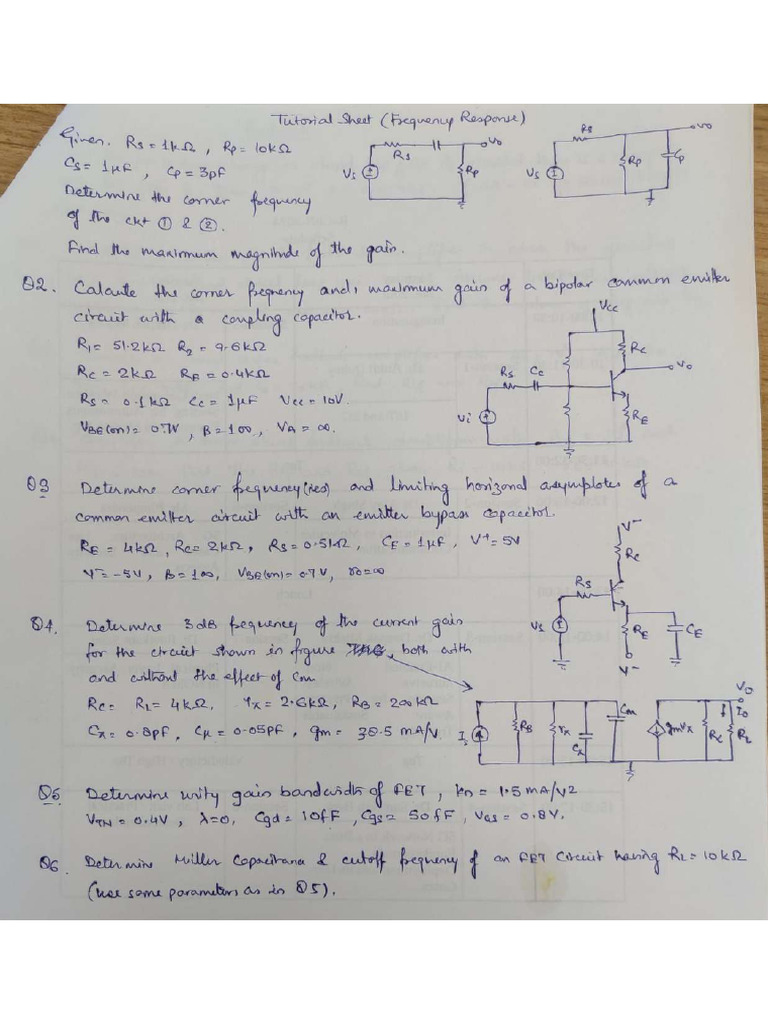 Tutorial Sheet (Frequency Response)
Given. Rs = 1kΩ , Rp = 10kΩ
Cs = 1μF , Cp = 3pF
Determine the corner frequency
of the ckt ① & ②.
Find the maximum magnitude of the gain.
Rs
Vs
Rp
Vo
Rs
Vs
Rp
Cp
Vo
Q2. Calcute the corner freqency and, maximum gain of a bipolar common emitter
circuit with a coupling capacitor.
R1 = 51.2kΩ R2 = 9.6kΩ
Rc = 2kΩ RE = 0.4kΩ
Rs = 0.1kΩ Cc = 1μF Vcc = 10V.
VBE(on) = 0.7V , β = 100 , VA = ∞.
Vcc
Rc
Vo
Rs Cc
Vi
RE
Q3 Determine corner frequency and limiting horizonal asymptotes of a
common emitter circuit with an emitter bypass capacitor.
RE = 4kΩ , Rc = 2kΩ , Rs = 0.5kΩ , CE = 1μF , V+ = 5V
V- = -5V , β = 100 , VBE(on) = 0.7V , ro = ∞
V-
Rc
Rs
Vs
RE
CE
V-
Q4. Determine 3dB frequency of the current gain
for the circuit shown in figure , both with
and without the effect of Cm.
Rc = RL = 4kΩ , rπ = 2.6kΩ , RB = 200kΩ
Cπ = 0.8pF , Cμ = 0.05pF , gm = 38.5 mA/V.
Is
RB
rπ
Cπ
Cm
gmVπ
Rc
Io
RL
Vo
Q5. Determine unity gain bandwidth of FET , kn = 1.5 mA/V2
VTN = 0.4V , λ=0, Cgd = 10fF , Cgs = 50fF , VGS = 0.8V.
Q6. Determine Miller Capacitance & cutoff frequency of an FET circuit having RL = 10kΩ
(use some parameters as in Q5).